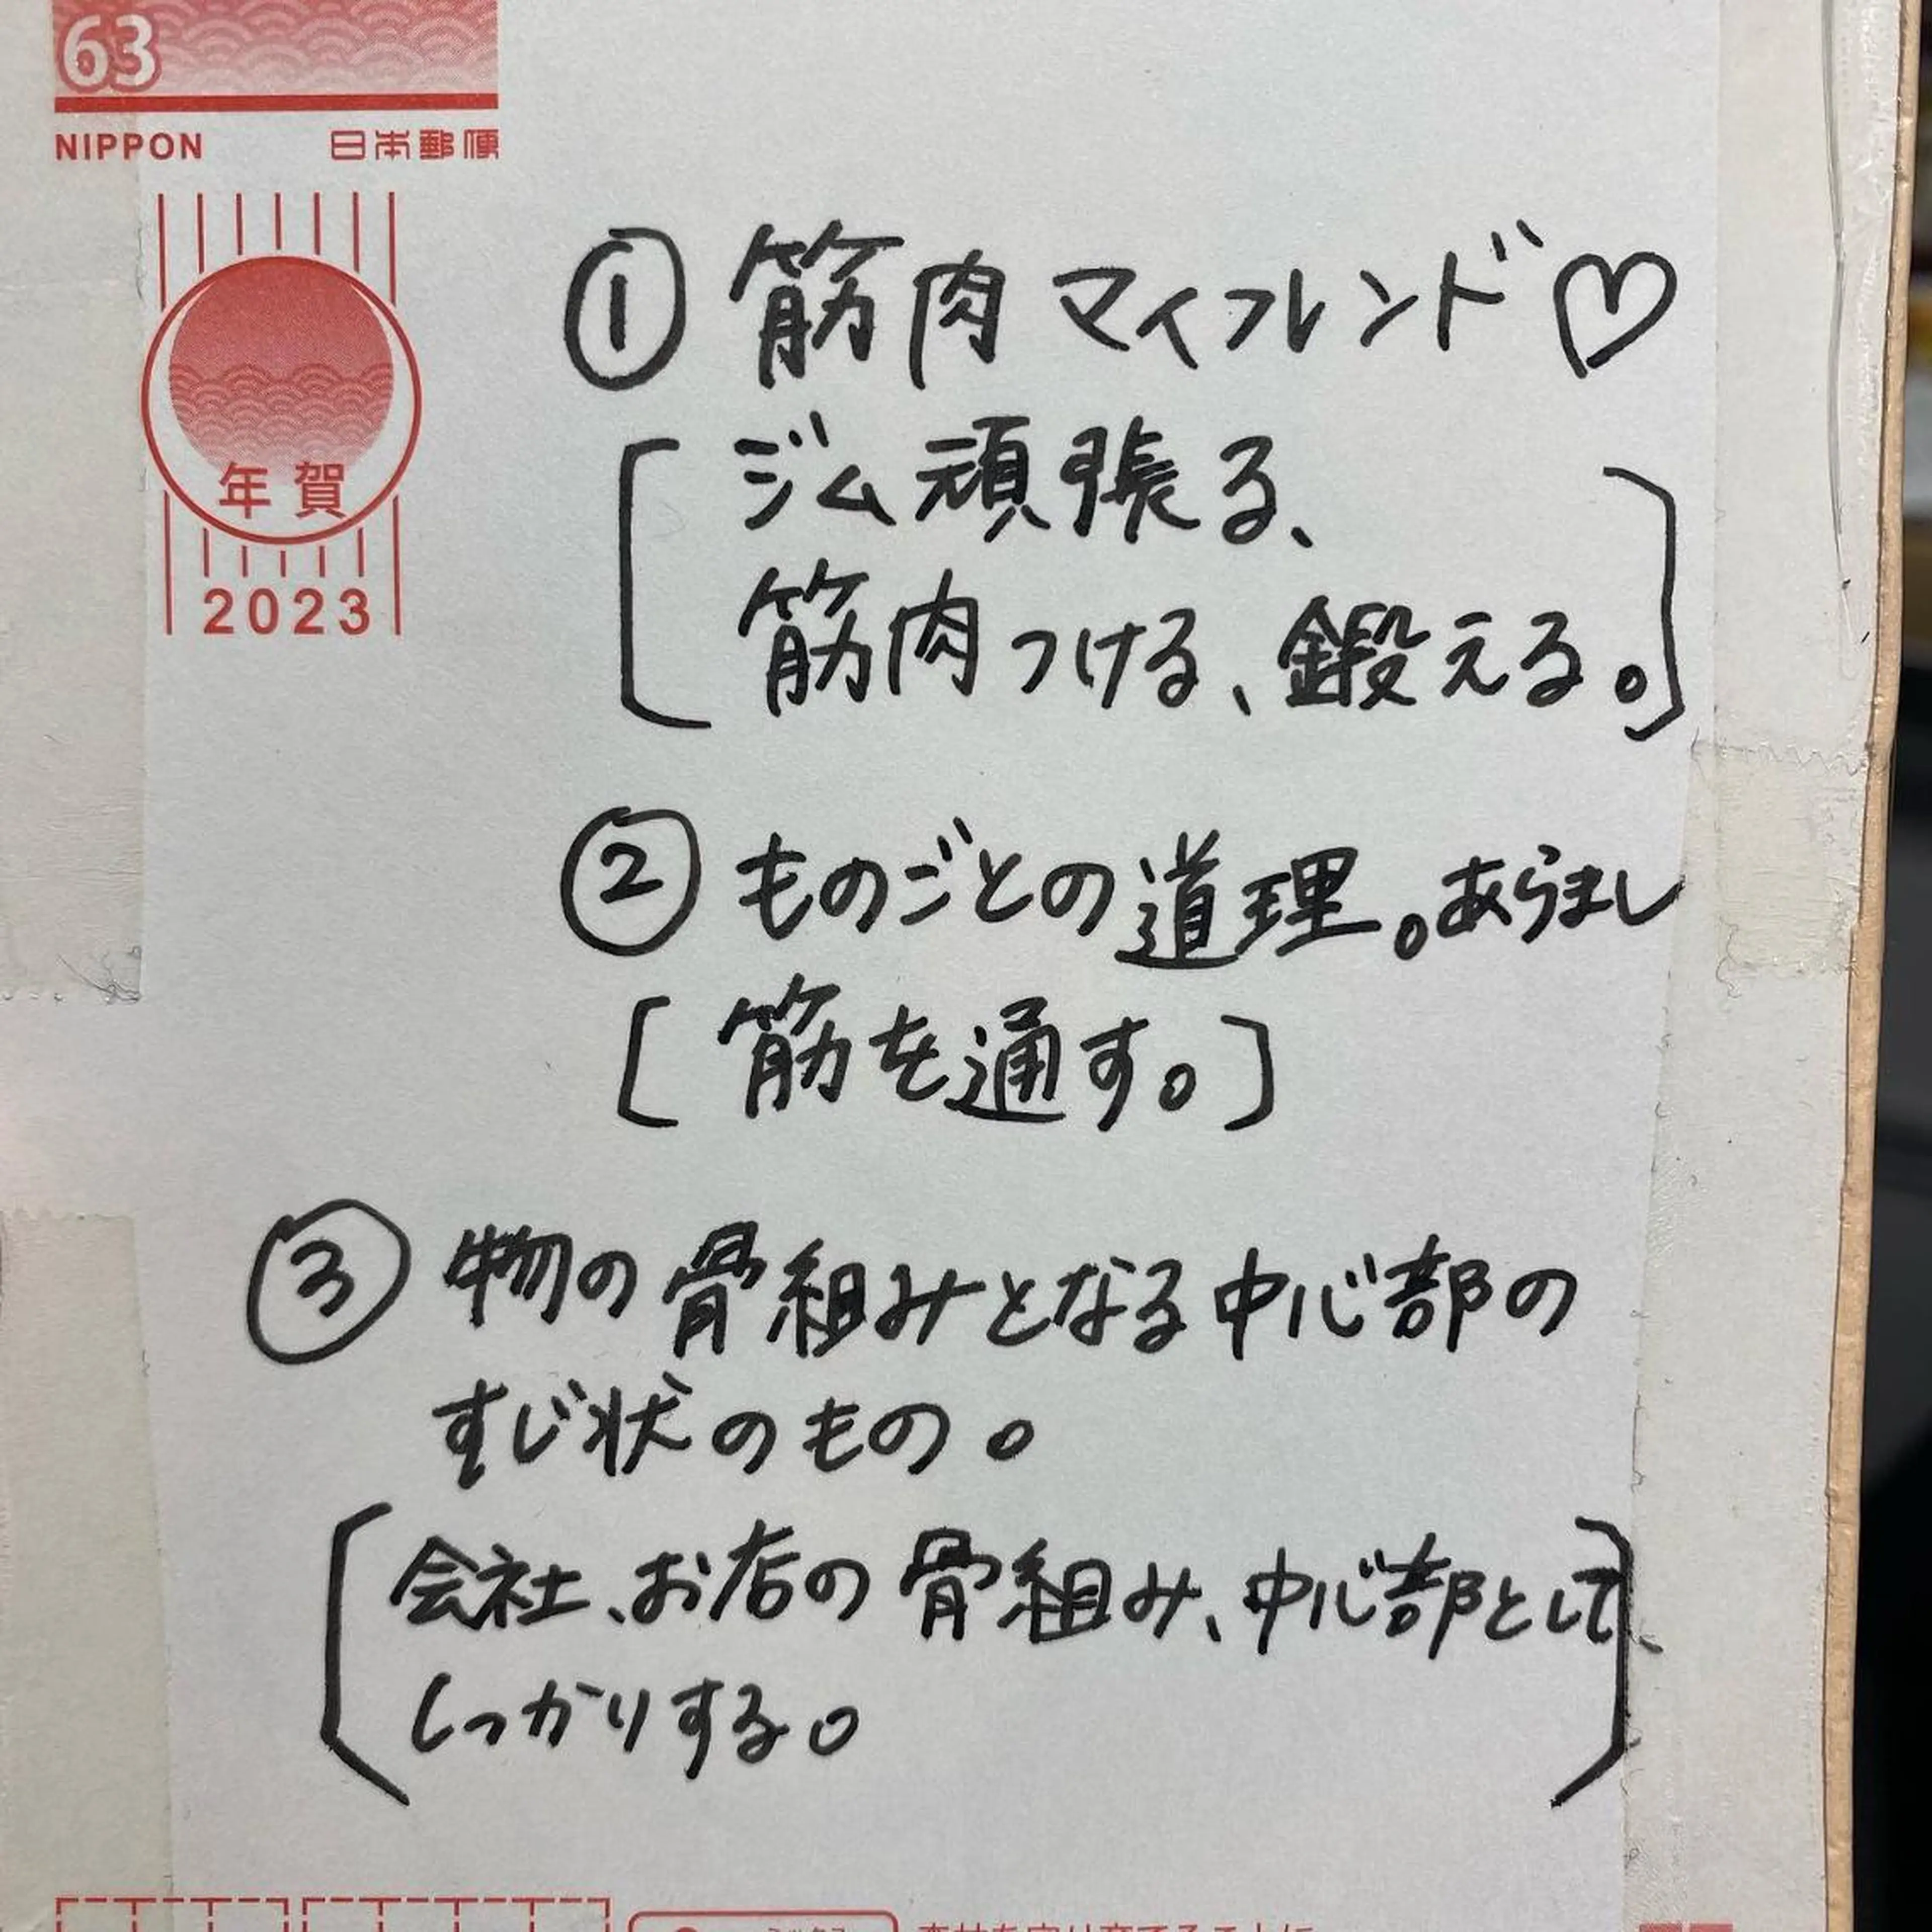 63
NIPPON 日本郵便
年賀
2023
① 筋肉マイフレンド♡
[ジム頑張る、
筋肉つける、鍛える。]
② ものごとの道理。あらまし
[筋を通す。]
③ 物の骨組みとなる中心部の
すじ状のもの。
[会社、お店の骨組み、中心部として、
しっかりする。]